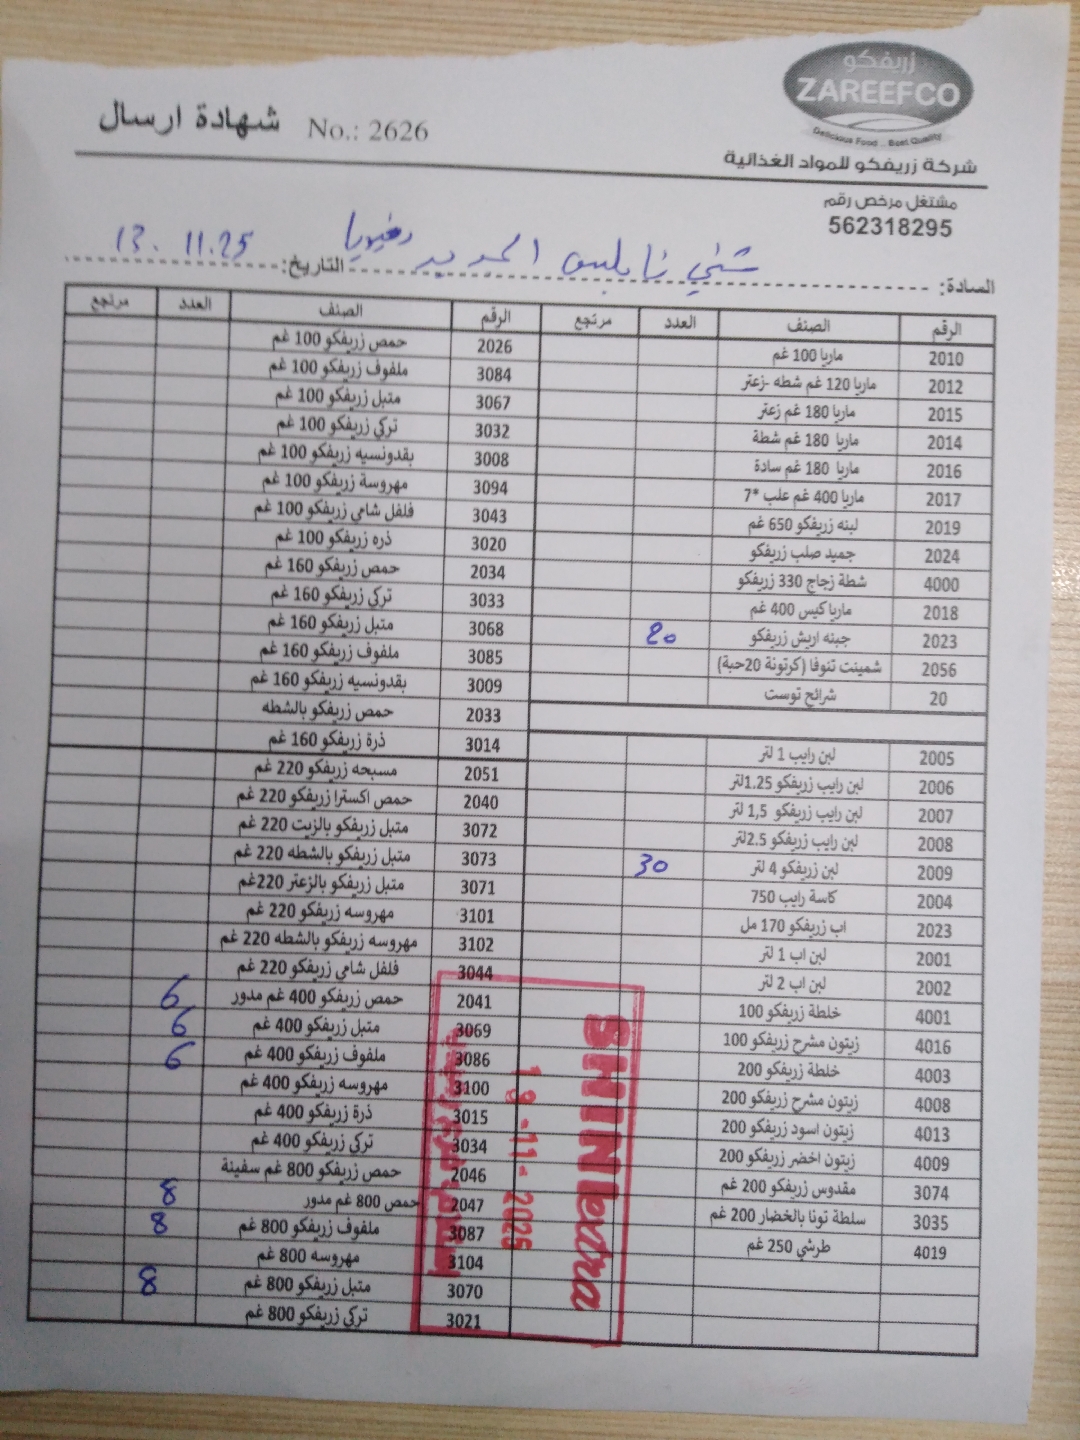 زريفكو
ZAREEFCO
Delicious Food .. Best Quality
شركة زريفكو للمواد الغذائية
شهادة ارسال No.: 2626
مشتغل مرخص رقم
562318295
السادة: شني نابلس الجديد رفيديا التاريخ: 13.11.25
الرقم الصنف العدد مرتجع
2010 ماريا 100 غم
2012 ماريا 120 غم شطه -زعتر
2015 ماريا 180 غم زعتر
2014 ماريا 180 غم شطة
2016 ماريا 180 غم سادة
2017 ماريا 400 غم علب *7
2019 لبنه زريفكو 650 غم
2024 جميد صلب زريفكو
4000 شطة زجاج 330 زريفكو
2018 ماريا كيس 400 غم
2023 جبنه اريش زريفكو 20
2056 شمينت تنوفا (كرتونة 20حبة)
20 شرائح توست
2005 لبن رايب 1 لتر
2006 لبن رايب زريفكو 1.25لتر
2007 لبن رايب زريفكو 1,5 لتر
2008 لبن رايب زريفكو 2.5لتر
2009 لبن زريفكو 4 لتر 30
2004 كاسة رايب 750
2023 اب زريفكو 170 مل
2001 لبن اب 1 لتر
2002 لبن اب 2 لتر
4001 خلطة زريفكو 100
4016 زيتون مشرح زريفكو 100
4003 خلطة زريفكو 200
4008 زيتون مشرح زريفكو 200
4013 زيتون اسود زريفكو 200
4009 زيتون اخضر زريفكو 200
3074 مقدوس زريفكو 200 غم
3035 سلطة تونا بالخضار 200 غم
4019 طرشي 250 غم
الرقم الصنف العدد مرتجع
2026 حمص زريفكو 100 غم
3084 ملفوف زريفكو 100 غم
3067 متبل زريفكو 100 غم
3032 تركي زريفكو 100 غم
3008 بقدونسيه زريفكو 100 غم
3094 مهروسة زريفكو 100 غم
3043 فلفل شامي زريفكو 100 غم
3020 ذره زريفكو 100 غم
2034 حمص زريفكو 160 غم
3033 تركي زريفكو 160 غم
3068 متبل زريفكو 160 غم
3085 ملفوف زريفكو 160 غم
3009 بقدونسيه زريفكو 160 غم
2033 حمص زريفكو بالشطه
3014 ذرة زريفكو 160 غم
2051 مسبحه زريفكو 220 غم
2040 حمص اكسترا زريفكو 220 غم
3072 متبل زريفكو بالزيت 220 غم
3073 متبل زريفكو بالشطه 220 غم
3071 متبل زريفكو بالزعتر 220غم
3101 مهروسه زريفكو 220 غم
3102 مهروسه زريفكو بالشطه 220 غم
3044 فلفل شامي زريفكو 220 غم
2041 حمص زريفكو 400 غم مدور 6
3069 متبل زريفكو 400 غم 6
3086 ملفوف زريفكو 400 غم 6
3100 مهروسه زريفكو 400 غم
3015 ذرة زريفكو 400 غم
3034 تركي زريفكو 400 غم
2046 حمص زريفكو 800 غم سفينة
2047 حمص 800 غم مدور 8
3087 ملفوف زريفكو 800 غم 8
3104 مهروسه 800 غم
3070 متبل زريفكو 800 غم 8
3021 تركي زريفكو 800 غم
SHINI extra